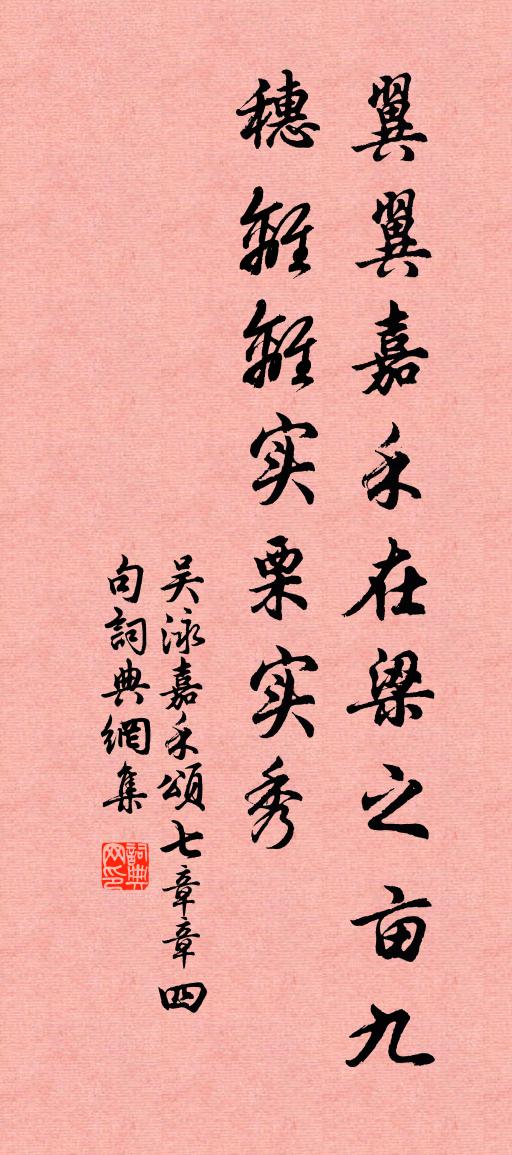 翼翼嘉禾在梁之亩九
穗離離实栗实秀
吴泳嘉禾頌七章章四
句詞典網集
詞典网印